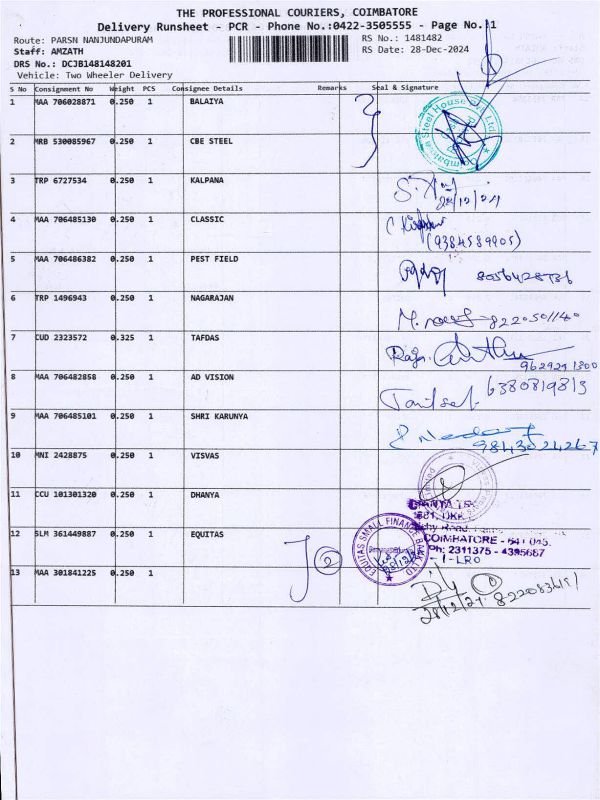 THE PROFESSIONAL COURIERS, COIMBATORE
Delivery Runsheet - PCR - Phone No.:0422-3505555 - Page No.:1
Route: PARSN NANJUNDAPURAM
RS No.: 1481482
Staff: AMZATH
RS Date: 28-Dec-2024
DRS No.: DCJB148148201
Vehicle: Two Wheeler Delivery
S No Consignment No Weight PCS Consignee Details Remarks Seal & Signature
1 MAA 706028871 0.250 1 BALAIYA
2 MRB 530085967 0.250 1 CBE STEEL
Coimbatore Steel House Pvt Ltd
3 TRP 6727534 0.250 1 KALPANA
4 MAA 706485130 0.250 1 CLASSIC
(9384589905)
5 MAA 706486382 0.250 1 PEST FIELD
6 TRP 1496943 0.250 1 NAGARAJAN
7 CUD 2323572 0.325 1 TAFDAS
8 MAA 706482858 0.250 1 AD VISION
6380819813
9 MAA 706485101 0.250 1 SHRI KARUNYA
9843024267
10 MNI 2428875 0.250 1 VISVAS
11 CCU 101301320 0.250 1 DHANYA
12 SLM 361449887 0.250 1 EQUITAS
EQUITAS SMALL FINANCE BANK LTD
COIMBATORE - 641 045.
Ph: 2311375 - 4395687
2
13 MAA 301841225 0.250 1
28/12/24